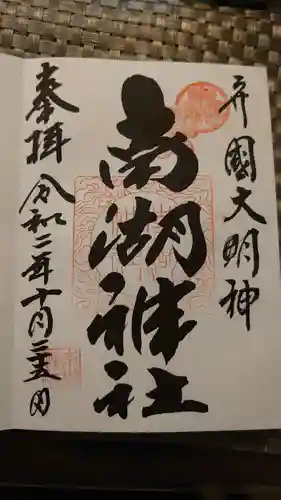 弁國大明神
南湖神社
奉拝
令和二年十月二十五日